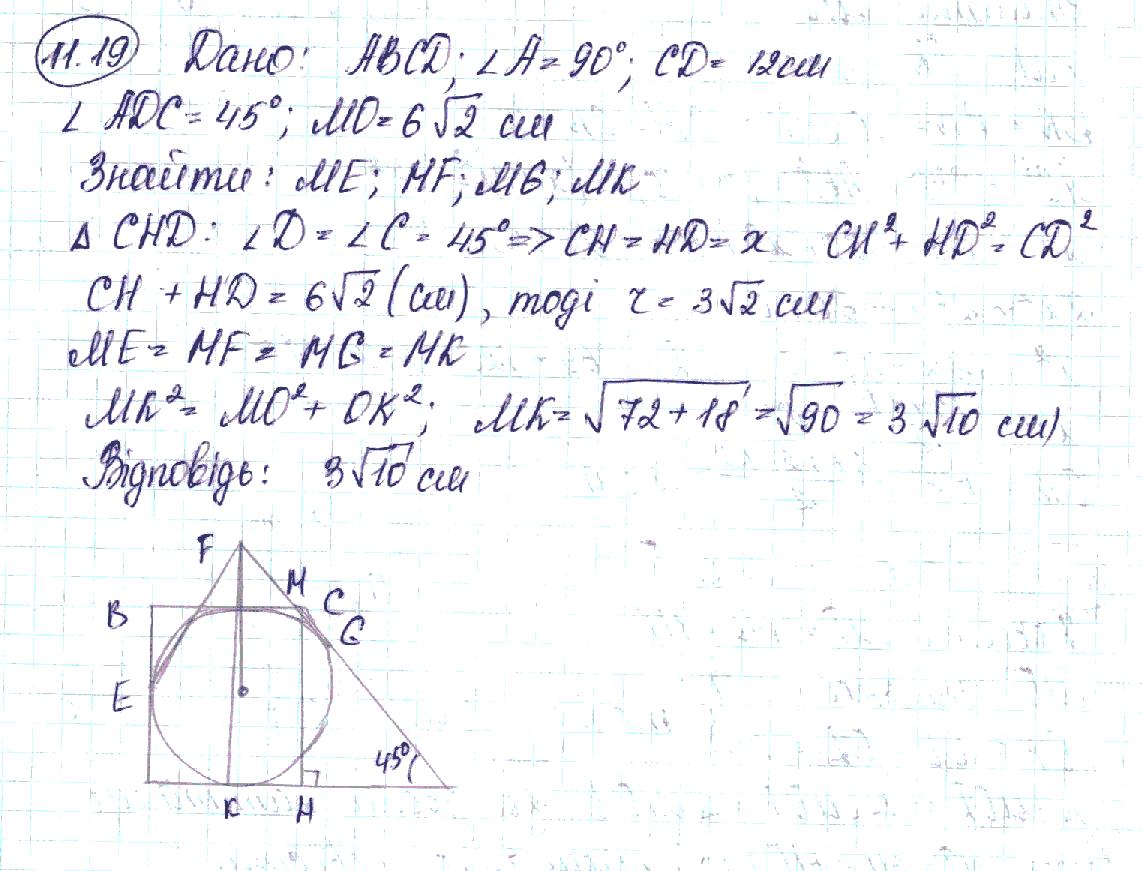 11.19 Дано: ABCD; ∠A = 90°; CD = 12 см
∠ ADC = 45°; MO = 6√2 см
Знайти: ME; MF; MG; MK
Δ CHD: ∠D = ∠C = 45° => CH = HD = x CH² + HD² = CD²
CH + HD = 6√2 (см), тоді r = 3√2 см
ME = MF = MG = MK
MK² = MO² + OK²; MK = √72 + 18 = √90 = 3√10 см)
Відповідь: 3√10 см
F
M
B
C
G
E
45°
K
H